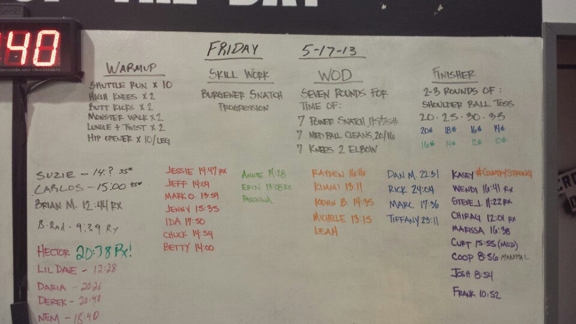 OF THE DAY
40
FRIDAY 5-17-13
WARMUP
SHUTTLE RUN X 10
HIGH KNEES X 2
BUTT KICKS X 2
MONSTER WALK X 2
LUNGE + TWIST X 2
HIP OPENER X 10/LEG
SKILL WORK
BURGENER SNATCH
PROGRESSION
WOD
SEVEN ROUNDS FOR
TIME OF:
7 POWER SNATCH
7 MED BALL CLEANS 20/16
7 KNEES 2 ELBOW
FINISHER
2-3 ROUNDS OF:
SHOULDER BALL TOSS
20 - 25 - 30 - 35
20# 18# 16# 14#
SUZIE - 14:? 35#
CARLOS - 15:00 35#
BRIAN M. 12:44 RX
B-RAD - 9:39 RX
HECTOR 20:78 RX!
LIL DAVE - 12:28
DARIA - 20:21
DEREK - 20:41
JESSIE 14:47 RX
JEFF 14:09
MARK D. 13:59
JENNY 15:35
IDA 17:50
CHUCK 14:59
BETTY 14:00
ERIN
KIMMI 13:11
JOHN B. 14:35
MICHELE 13:15
LEAH
DAN M. 22:51
RICK 24:04
MARC 17:36
TIFFANY 23:11
KASEY
WENDI 16:41 RX
STEVE 11:22 RX
CHIRAG 12:01 RX
MARISSA 16:38
CURT 15:55 (MOD)
COOP 8:56
JOSH 8:54
FRANK 10:52